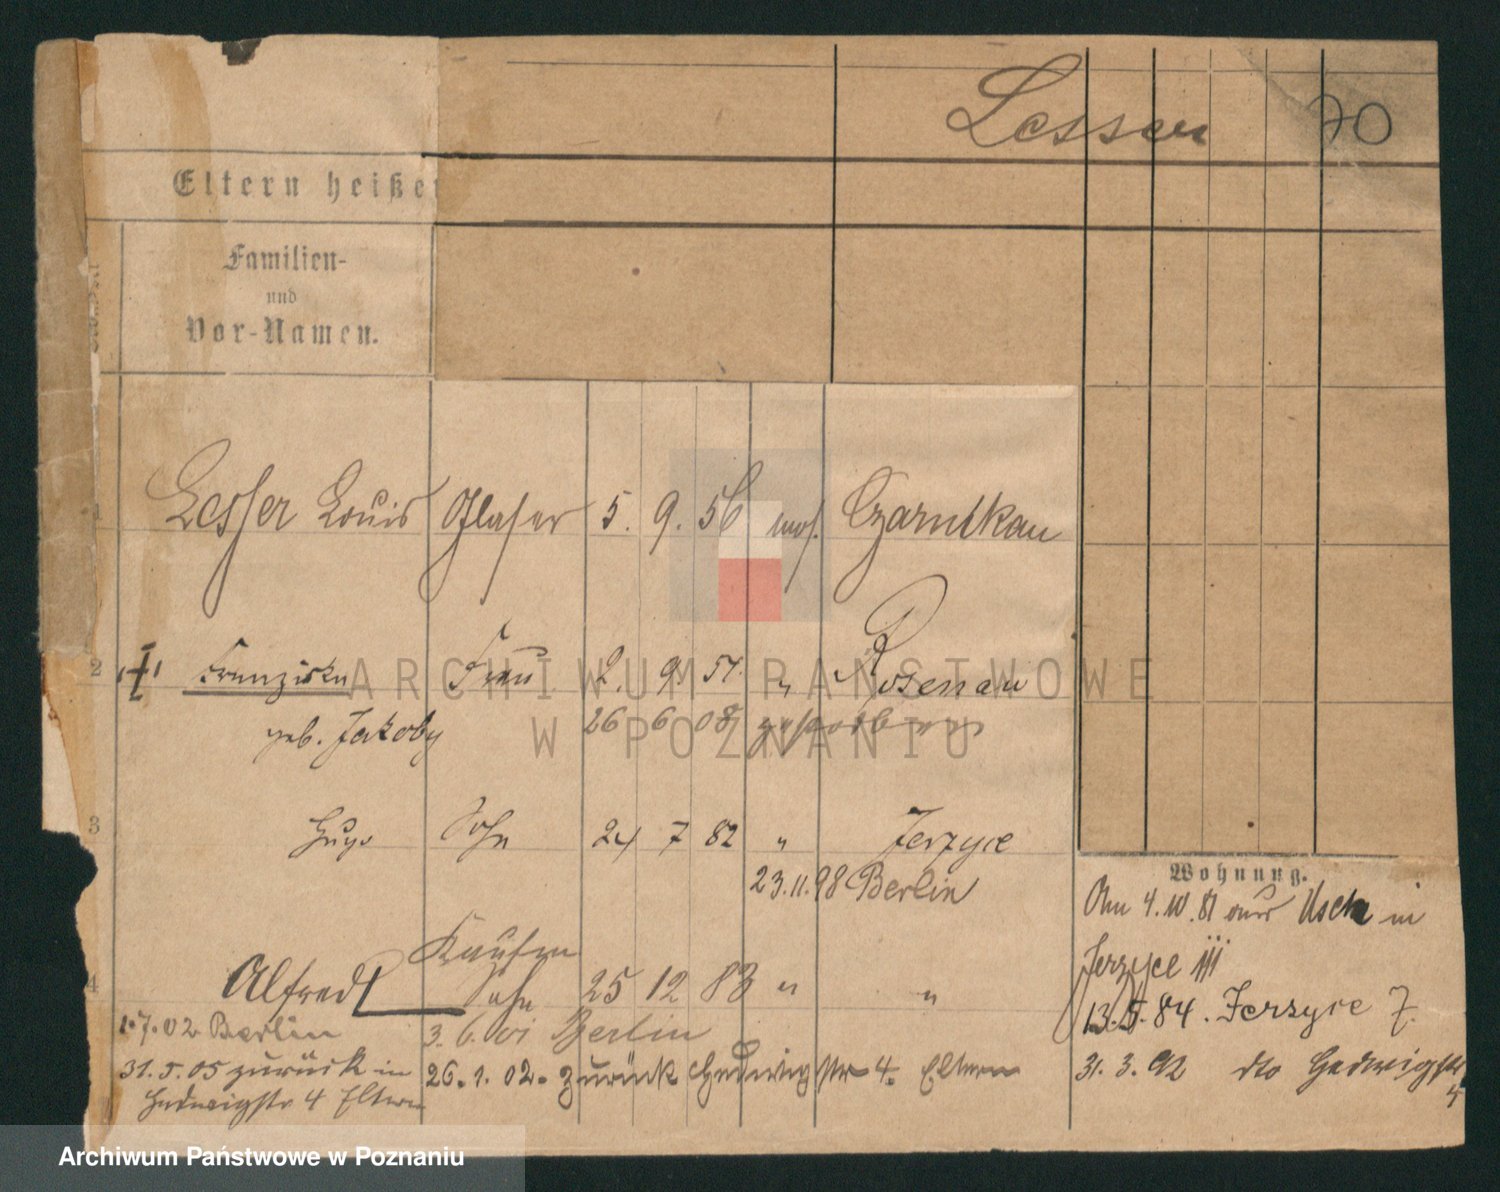 Lesser 70
Eltern heißen
Familien-
und
Vor-Namen.
1 Lesser Louis Glaser 5. 9. 56 mos. Czarnikau
2 Franziska Frau 2. 9. 57. " Rosenau
geb. Jakoby 26 6 08 gestorben
3 Hugo Sohn 24 7 82 " Jerzyce
23.11.98 Berlin
Wohnung.
Am 4.10.81 aus Usch in
Jerzyce
Kaufm
4 Alfred Sohn 25 12 83 " "
13.5.84. Jerzyce 7.
1.7.02 Berlin 3.6.01 Berlin
31.5.05 zurück in 26.1.02. zurück Hedwigstr 4. Eltern
31.3.92 dto Hedwigstr
4
Hedwigstr 4 Eltern
ARCHIWUM PAŃSTWOWE
W POZNANIU
Archiwum Państwowe w Poznaniu